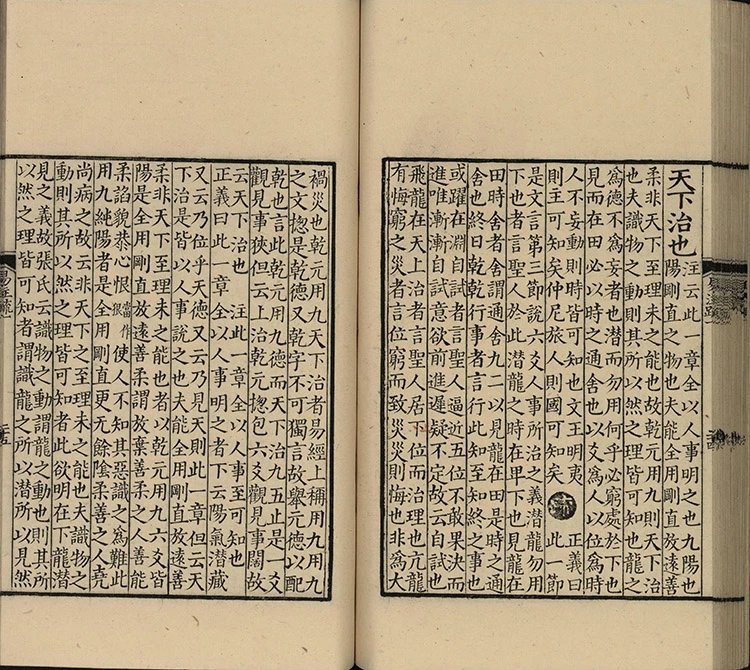 天下治也
注云此一章全以人事明之也九陽也
陽剛直之物也夫能全用剛直放遠善
柔非天下至理未之能也故乾元用九則天下治
也夫識物之動則其所以然之理皆可知也龍之
為德不為妄者也潛而勿用何乎必窮處於下也
見而在田必以時之通舍也以爻為人以位為時
人不妄動則時皆可知也文王明夷
則主可知矣仲尼旅人則國可知矣 疏 正義曰 此一節
是文言第三節說六爻人事所治之義潛龍勿用
下也者言聖人於此潛龍之時在卑下也見龍在
田時舍者舍謂通舍九二以見龍在田是時之通
舍也終日乾乾行事者言行此知至知終之事也
或躍在淵自試者言聖人逼近五位不敢果決而
進唯漸漸自試意欲前進遲疑不定故云自試也
飛龍在天上治者言聖人居上位而治理也亢龍
有悔窮之災者言位窮而致災災則悔也非為大
禍災也乾元用九天下治者易經上稱用九用九
之文揔是乾德又乾字不可獨言故舉元德以配
乾也言此乾元用九德而天下治九五止是一爻
觀見事狹但云上治乾元揔包六爻觀見事闊故
云天下治也 注此一章全以人事至可知也
正義曰此一章全以人事明之者下云陽氣潛藏
又云乃位乎天德又云乃見天則此一章但云天
下治是皆以人事說之也夫能全用剛直放遠善
柔非天下至理未之能也者以乾元用九六爻皆
陽是全用剛直放遠善柔謂放棄善柔之人善能
柔諂貌恭心恨當作很使人不知其惡識之為難此
用九純陽者是全用剛直更无餘陰柔善之人堯
尚病之故云非天下之至理未之能也夫識物之
動則其所以然之理皆可知者此欲明在下龍潛
見之義故張氏云識物之動謂龍之動也則其所
以然之理皆可知者謂識龍之所以潛所以見然